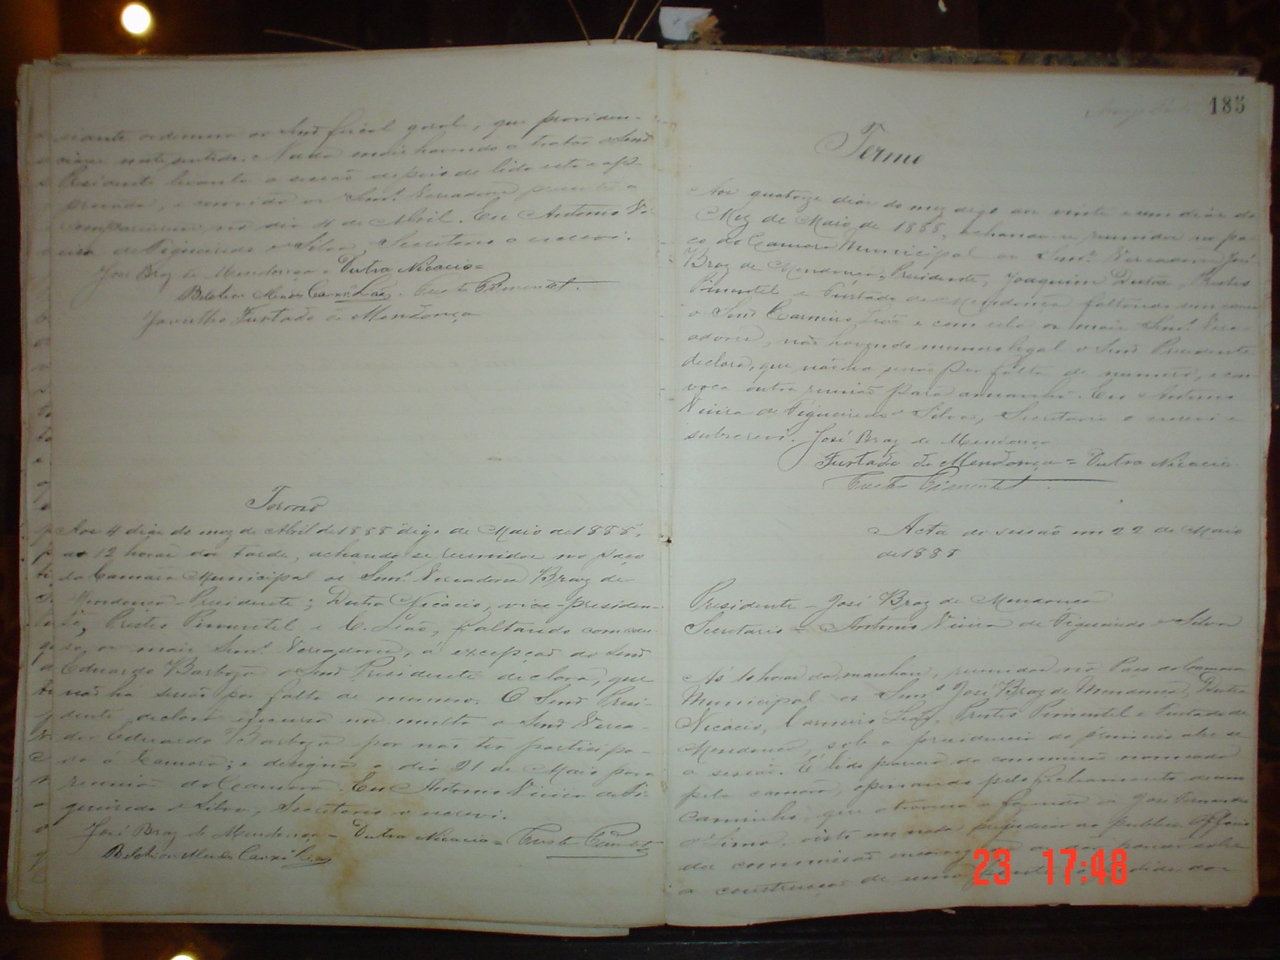 ciante ordenou ao Senr fiscal geral, que providen-
ciasse neste sentido. Nada mais havendo a tratar o Senr
Presidente levanta a sessão depois de lida esta e ap-
provada, e convida os Senrs Vereadores presentes a
comparecerem no dia 4 de Abril. Eu Antonio Vi-
eira de Figueiredo e Silva Secretario o escrevi.
José Braz de Mendonça = Dutra Nicacio =
Carn. Leão. Prestes Pimentel.
Furtado de Mendonça
Termo
Aos 4 dias do mez de Abril de 1885 digo de Maio de 1885,
as 12 horas da tarde, achando-se reunidos no Paço
da Camara Municipal os Senrs Vereadores Braz de
Mendonça - Presidente; Dutra Nicacio, vice-presiden-
te, Prestes Pimentel e C. Leão, faltando com cau-
sa os mais Senrs Vereadores, á excepção do Senr
Eduardo Barboza o Senr Presidente declara, que
não ha sessão por falta de numero. O Senr Presi-
dente, declara incurso na multa o Senr Verea-
dor Eduardo Barboza por não ter participa-
do á Camara; e designa o dia 21 de Maio para
reunião da Camara. Eu Antonio Vieira de Fi-
gueiredo e Silva, Secretario o escrevi.
José Braz de Mendonça = Dutra Nicacio = Prestes Pimentel
185
Termo
Aos quatorze dias do mez digo aos vinte e um dias do
Mez de Maio de 1885, achando-se reunidos no pa-
ço da Camara Municipal os Senrs Vereadores José
Braz de Mendonça, Presidente, Joaquim Dutra, Prestes
Pimentel e Furtado de Mendonça faltando sem causa
o Senr Carneiro Leão e com ella os mais Senrs Vere-
adores, não havendo numero legal o Senr Presidente
declara, que não ha sessão por falta de numero, e con-
voca outra reunião para amanhã. Eu Antonio
Vieira de Figueiredo e Silva, Secretario o escrevi e
subscrevi. José Braz de Mendonça
Furtado de Mendonça = Dutra Nicacio
Prestes Pimentel
Acta da sessão em 22 de Maio
de 1885
Presidente - José Braz de Mendonça
Secretario - Antonio Vieira de Figueiredo e Silva
Ás 10 horas da manhan, reunidos no Paço da Camara
Municipal os Senrs José Braz de Mendonça, Dutra
Nicacio, Carneiro Leão, Prestes Pimentel e Furtado de
Mendonça, sob a presidencia do primeiro abre-se
a sessão. É lido parecer da commissão nomeada
pela camara, opinando pelo fechamento de um
caminho, que atravessa a fazenda de José Fernandes
Lima, visto em nada prejudicar ao publico.
da commissão
a construcção de uma
23 17:48